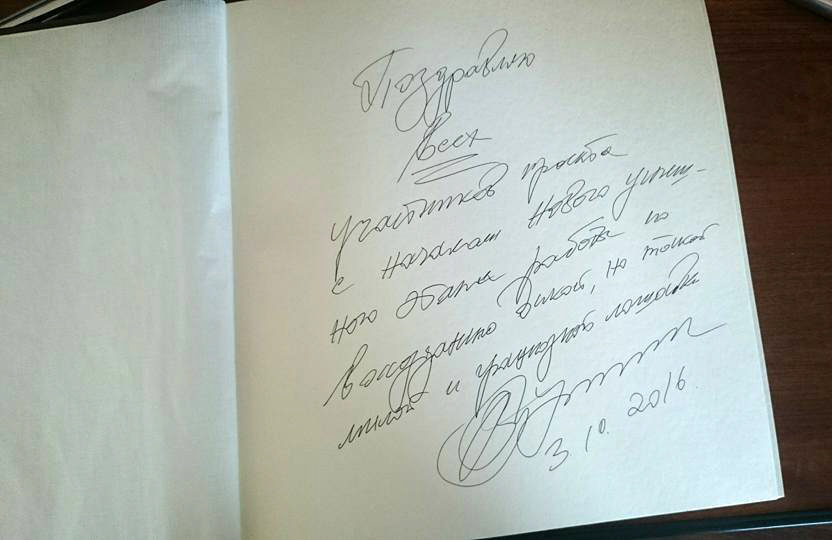 Поздравляю
Всех
участников проекта
с началом нового успеш-
ного этапа работы по
воссозданию дикой, но такой
милой и грациозной лошадки
3.10.2016